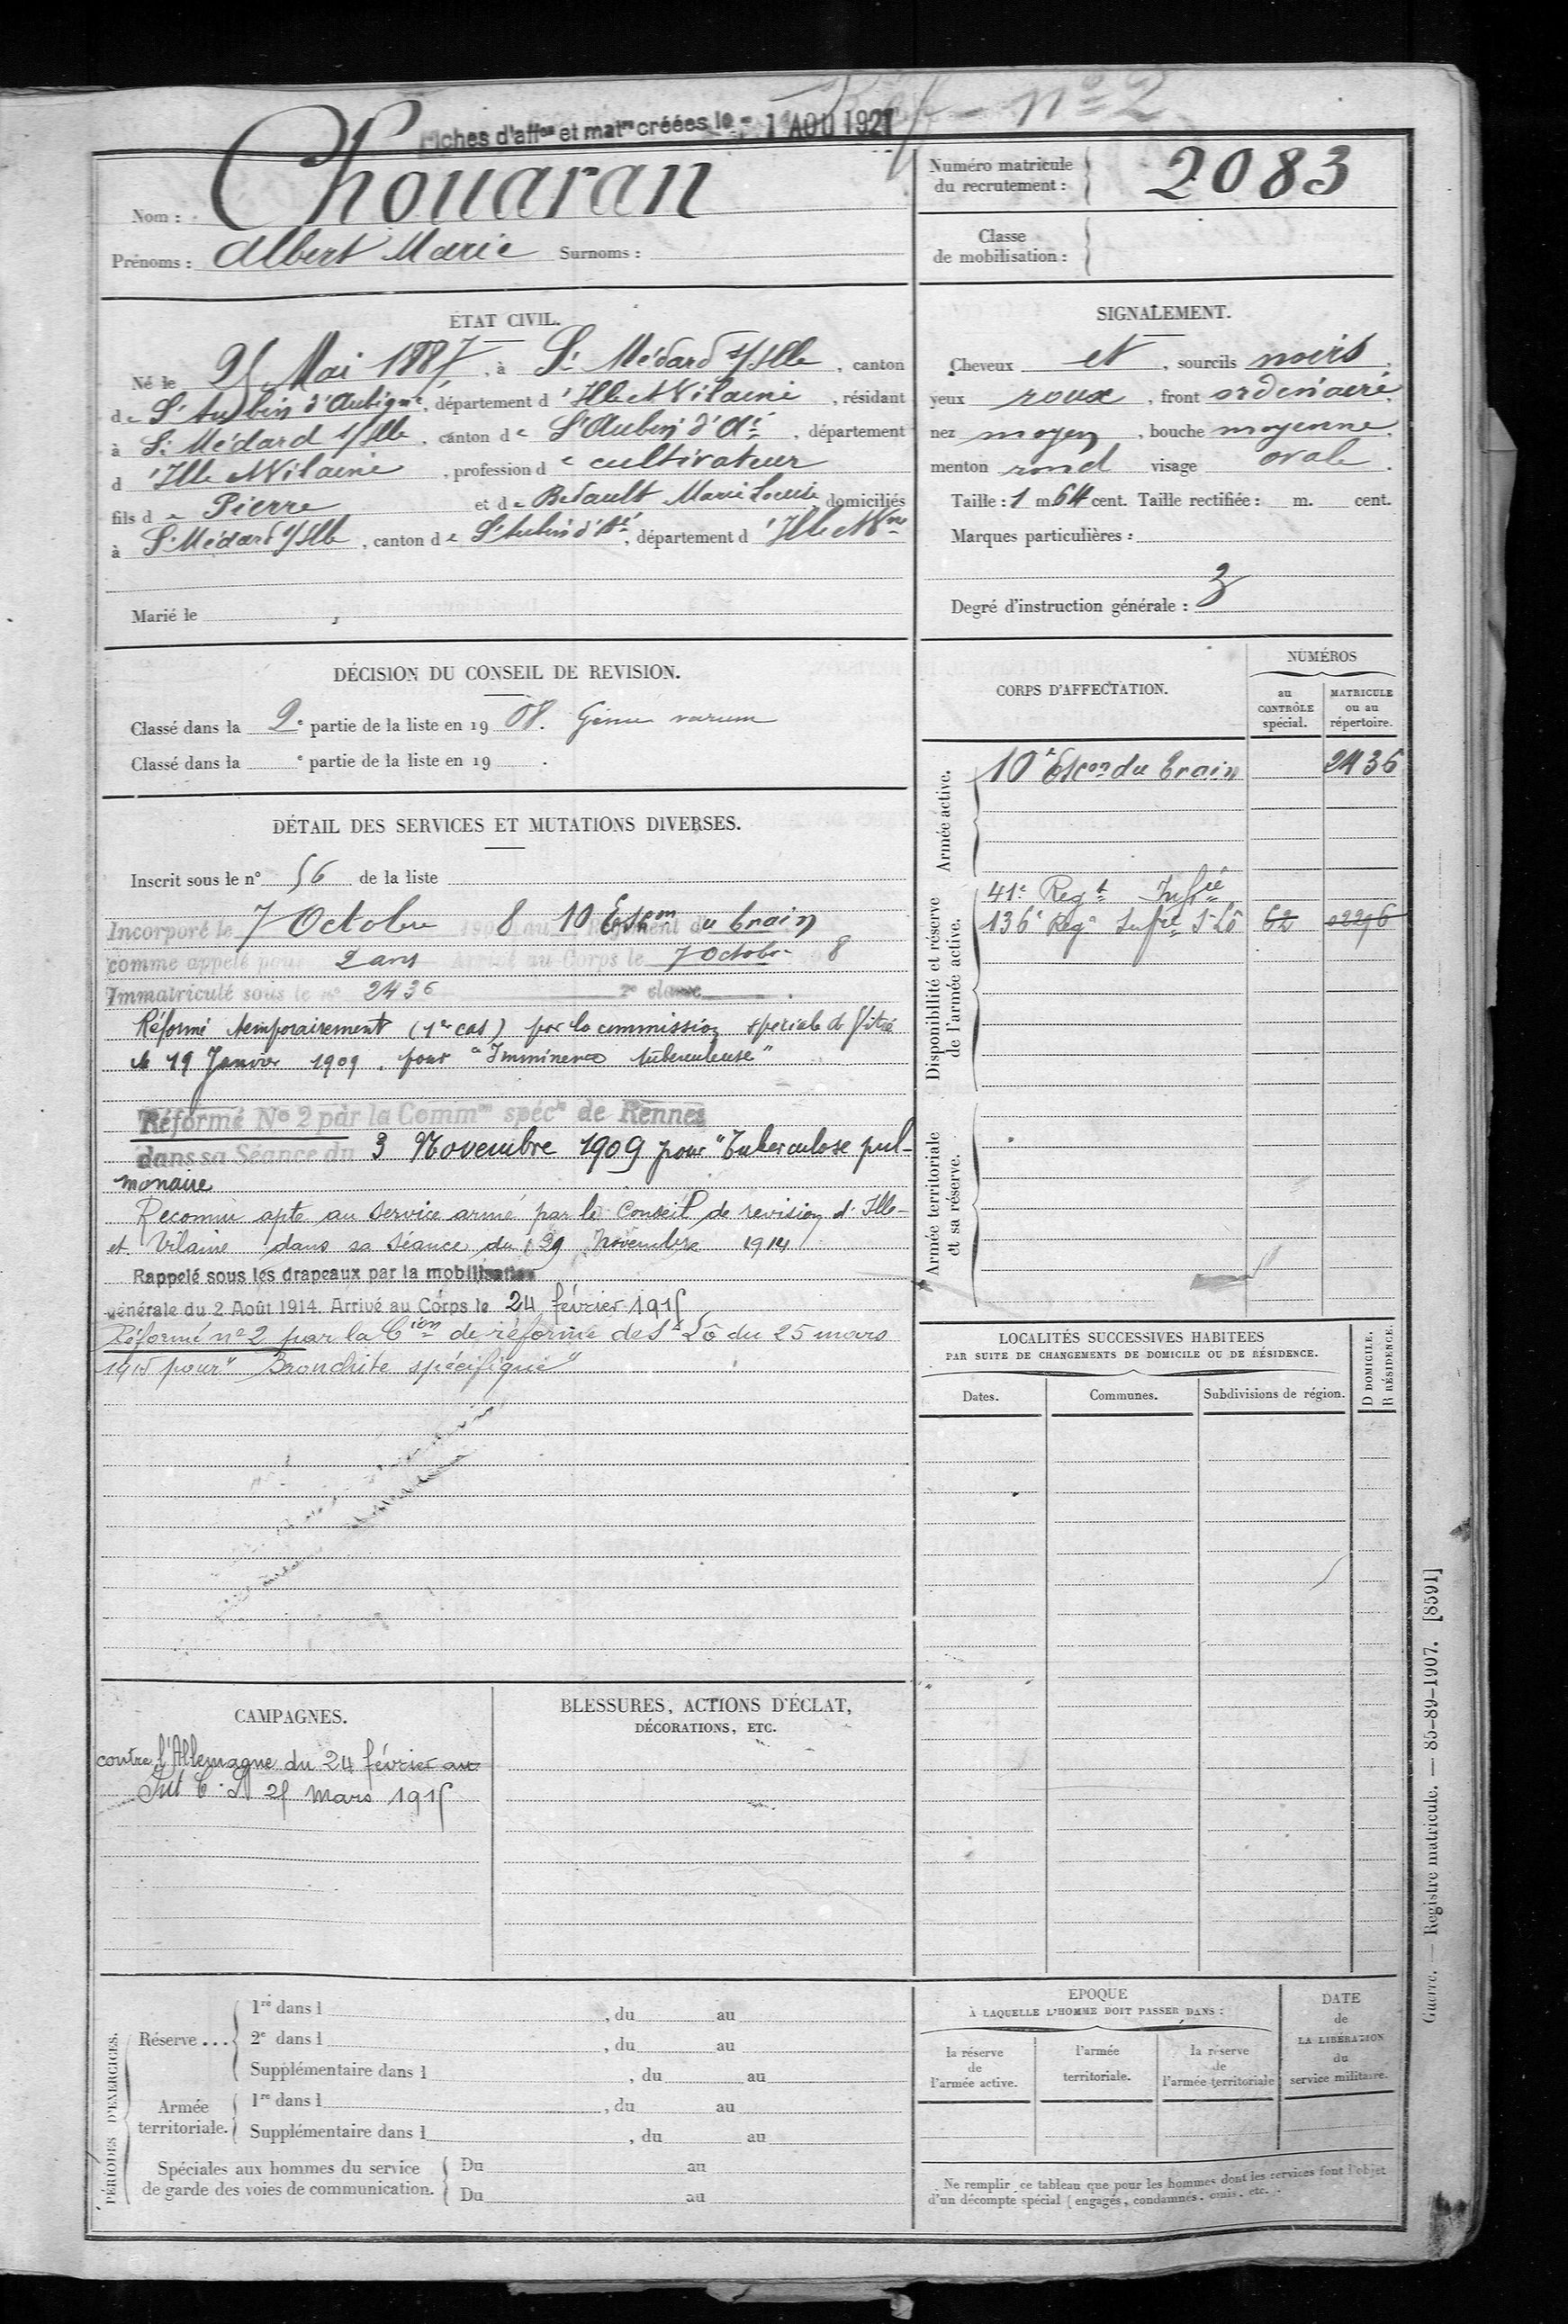 Réf - nº 2
Fiches d'aff<sup>on</sup> et mat<sup>re</sup> créées le - 1 AOU 1927
Nom : Chouaran
Prénoms : Albert Marie Surnoms :
Numéro matricule du recrutement : 2083
Classe de mobilisation :
ÉTAT CIVIL.
Né le 25 Mai 1887, à St Médard s/Ille, canton
de St Aubin d'Aubigné, département d'Ille et Vilaine, résidant
à St Médard s/Ille, canton de St Aubin d'Aé, département
d'Ille et Vilaine, profession de cultivateur
fils de Pierre et de Marie Louise domiciliés
à St Médard s/Ille, canton de St Aubin d'Aé, département d'Ille et Vne
Marié le
SIGNALEMENT.
Cheveux et, sourcils noirs
yeux roux, front ordinaire,
nez moyen, bouche moyenne,
menton rond visage ovale.
Taille : 1 m. 64 cent. Taille rectifiée : m. cent.
Marques particulières :
Degré d'instruction générale : 3
DÉCISION DU CONSEIL DE REVISION.
Classé dans la 2e partie de la liste en 1908. Genu varum
Classé dans la e partie de la liste en 19 .
DÉTAIL DES SERVICES ET MUTATIONS DIVERSES.
Inscrit sous le n° 56 de la liste
Incorporé le 7 Octobre 1908 au 10 Escon du train
comme appelé pour 2 ans Arrivé au Corps le 7 Octobre 8
Immatriculé sous le nº 2436 2e classe.
Réformé temporairement (1er cas) par la commission spéciale de Vitré
le 19 Janvier 1909. pour "Imminence tuberculeuse"
Réformé Nº 2 par la Comm<sup>on</sup> spéc<sup>le</sup> de Rennes
dans sa Séance du 3 Novembre 1909 pour "Tuberculose pul-
monaire
Reconnu apte au service armé par le Conseil de revision d'Ille-
et Vilaine dans sa séance du 29 Novembre 1914
Rappelé sous les drapeaux par la mobilisation
générale du 2 Août 1914. Arrivé au Corps le 24 février 1915
Réformé nº 2 par la Cion de réforme de St Lô du 25 mars
1915 pour "Bronchite spécifique"
CORPS D'AFFECTATION.
NUMÉROS
au CONTRÔLE spécial.
MATRICULE ou au répertoire.
Armée active.
10e Escon du train 2436
Disponibilité et réserve de l'armée active.
41e Regt Infie
136e Regt Infie St Lô 62 02296
Armée territoriale et sa réserve.
LOCALITÉS SUCCESSIVES HABITEES
PAR SUITE DE CHANGEMENTS DE DOMICILE OU DE RÉSIDENCE.
Dates. Communes. Subdivisions de région.
D DOMICILE.
R RÉSIDENCE.
CAMPAGNES.
contre l'Allemagne du 24 février au
Int C. S. 25 mars 1915
BLESSURES, ACTIONS D'ÉCLAT,
DÉCORATIONS, ETC.
PÉRIODES D'EXERCICES.
Réserve ...
1re dans l , du au
2e dans l , du au
Supplémentaire dans l , du au
Armée territoriale.
1re dans l , du au
Supplémentaire dans l , du au
Spéciales aux hommes du service
de garde des voies de communication.
Du au
Du au
EPOQUE
À LAQUELLE L'HOMME DOIT PASSER DANS :
la réserve de l'armée active.
l'armée territoriale.
la réserve de l'armée territoriale
DATE de LA LIBÉRATION du service militaire.
Ne remplir ce tableau que pour les hommes dont les services font l'objet
d'un décompte spécial (engagés, condamnés, omis, etc.).
Guerre. — Registre matricule. — 85-89-1907. [8591]